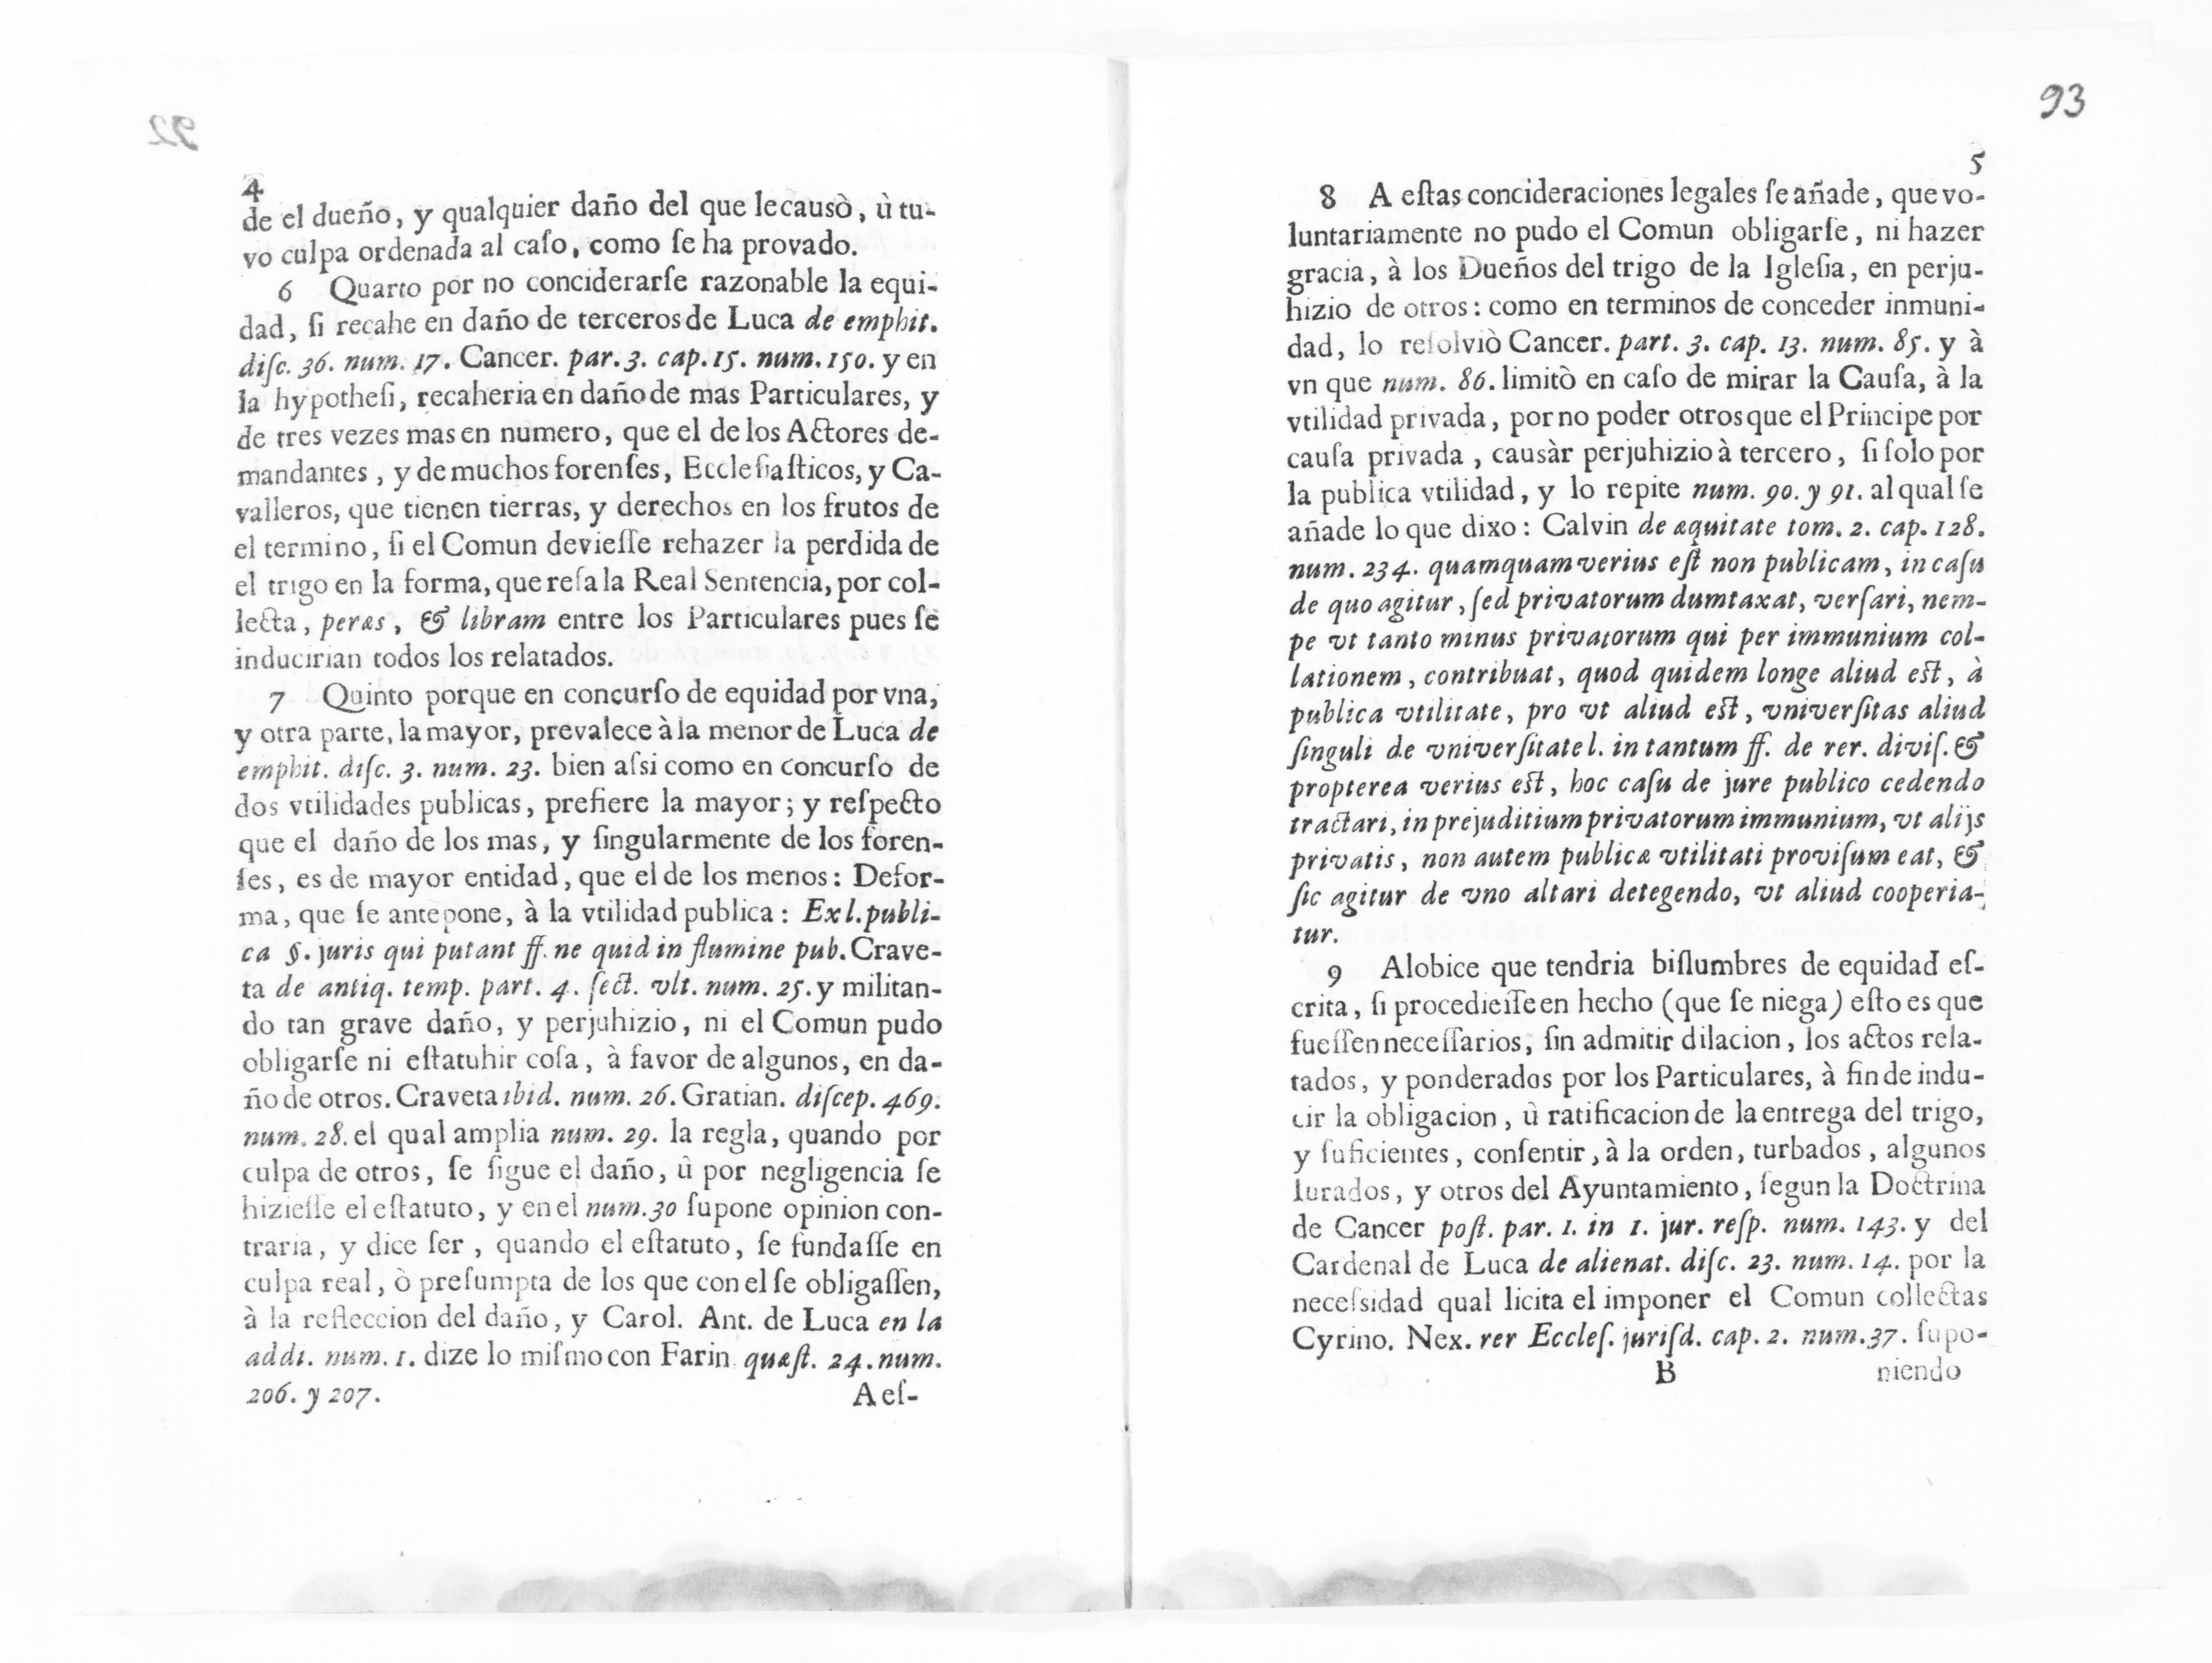 92
4
de el dueño, y qualquier daño del que le causò, ù tu-
vo culpa ordenada al caſo, como ſe ha provado.
6 Quarto por no conciderarſe razonable la equi-
dad, ſi recahe en daño de terceros de Luca de emphit.
diſc. 36. num. 17. Cancer. par. 3. cap. 15. num. 150. y en
la hypotheſi, recaheria en daño de mas Particulares, y
de tres vezes mas en numero, que el de los Actores de-
mandantes, y de muchos forenſes, Eccleſiaſticos, y Ca-
valleros, que tienen tierras, y derechos en los frutos de
el termino, ſi el Comun devieſſe rehazer la perdida de
el trigo en la forma, que reſa la Real Sentencia, por col-
lecta, peræs, & libram entre los Particulares pues ſe
inducirian todos los relatados.
7 Quinto porque en concurſo de equidad por vna,
y otra parte, la mayor, prevalece à la menor de Luca de
emphit. diſc. 3. num. 23. bien aſsi como en concurſo de
dos vtilidades publicas, prefiere la mayor; y reſpecto
que el daño de los mas, y ſingularmente de los foren-
ſes, es de mayor entidad, que el de los menos: Defor-
ma, que ſe antepone, à la vtilidad publica: Ex l. publi-
ca §. juris qui putant ff. ne quid in flumine pub. Crave-
ta de antiq. temp. part. 4. ſect. vlt. num. 25. y militan-
do tan grave daño, y perjuhizio, ni el Comun pudo
obligarſe ni eſtatuhir coſa, à favor de algunos, en da-
ño de otros. Craveta ibid. num. 26. Gratian. diſcep. 469.
num. 28. el qual amplia num. 29. la regla, quando por
culpa de otros, ſe ſigue el daño, ù por negligencia ſe
hizieſſe el eſtatuto, y en el num. 30 ſupone opinion con-
traria, y dice ſer, quando el eſtatuto, ſe fundaſſe en
culpa real, ò preſumpta de los que con el ſe obligaſſen,
à la refleccion del daño, y Carol. Ant. de Luca en la
addi. num. 1. dize lo miſmo con Farin. quæſt. 24. num.
206. y 207. A eſ-
93
5
8 A eſtas concideraciones legales ſe añade, que vo-
luntariamente no pudo el Comun obligarſe, ni hazer
gracia, à los Dueños del trigo de la Igleſia, en perju-
hizio de otros: como en terminos de conceder inmuni-
dad, lo reſolviò Cancer. part. 3. cap. 13. num. 85. y à
vn que num. 86. limitò en caſo de mirar la Cauſa, à la
vtilidad privada, por no poder otros que el Principe por
cauſa privada, causàr perjuhizio à tercero, ſi ſolo por
la publica vtilidad, y lo repite num. 90. y 91. al qual ſe
añade lo que dixo: Calvin de æquitate tom. 2. cap. 128.
num. 234. quamquam verius eſt non publicam, in caſu
de quo agitur, ſed privatorum dumtaxat, verſari, nem-
pe vt tanto minus privatorum qui per immunium col-
lationem, contribuat, quod quidem longe aliud eſt, à
publica vtilitate, pro vt aliud eſt, vniverſitas aliud
ſinguli de vniverſitate l. in tantum ff. de rer. diviſ. &
propterea verius eſt, hoc caſu de jure publico cedendo
tractari, in prejuditium privatorum immunium, vt alijs
privatis, non autem publicæ vtilitati proviſum eat, &
ſic agitur de vno altari detegendo, vt aliud cooperia-
tur.
9 Alobice que tendria biſlumbres de equidad eſ-
crita, ſi procedieſſe en hecho (que ſe niega) eſto es que
fueſſen neceſſarios, ſin admitir dilacion, los actos rela-
tados, y ponderados por los Particulares, à fin de indu-
cir la obligacion, ù ratificacion de la entrega del trigo,
y ſuficientes, conſentir, à la orden, turbados, algunos
Iurados, y otros del Ayuntamiento, ſegun la Doctrina
de Cancer poſt. par. 1. in 1. jur. reſp. num. 143. y del
Cardenal de Luca de alienat. diſc. 23. num. 14. por la
neceſsidad qual licita el imponer el Comun collectas
Cyrino. Nex. rer Eccleſ. juriſd. cap. 2. num. 37. ſupo-
B niendo